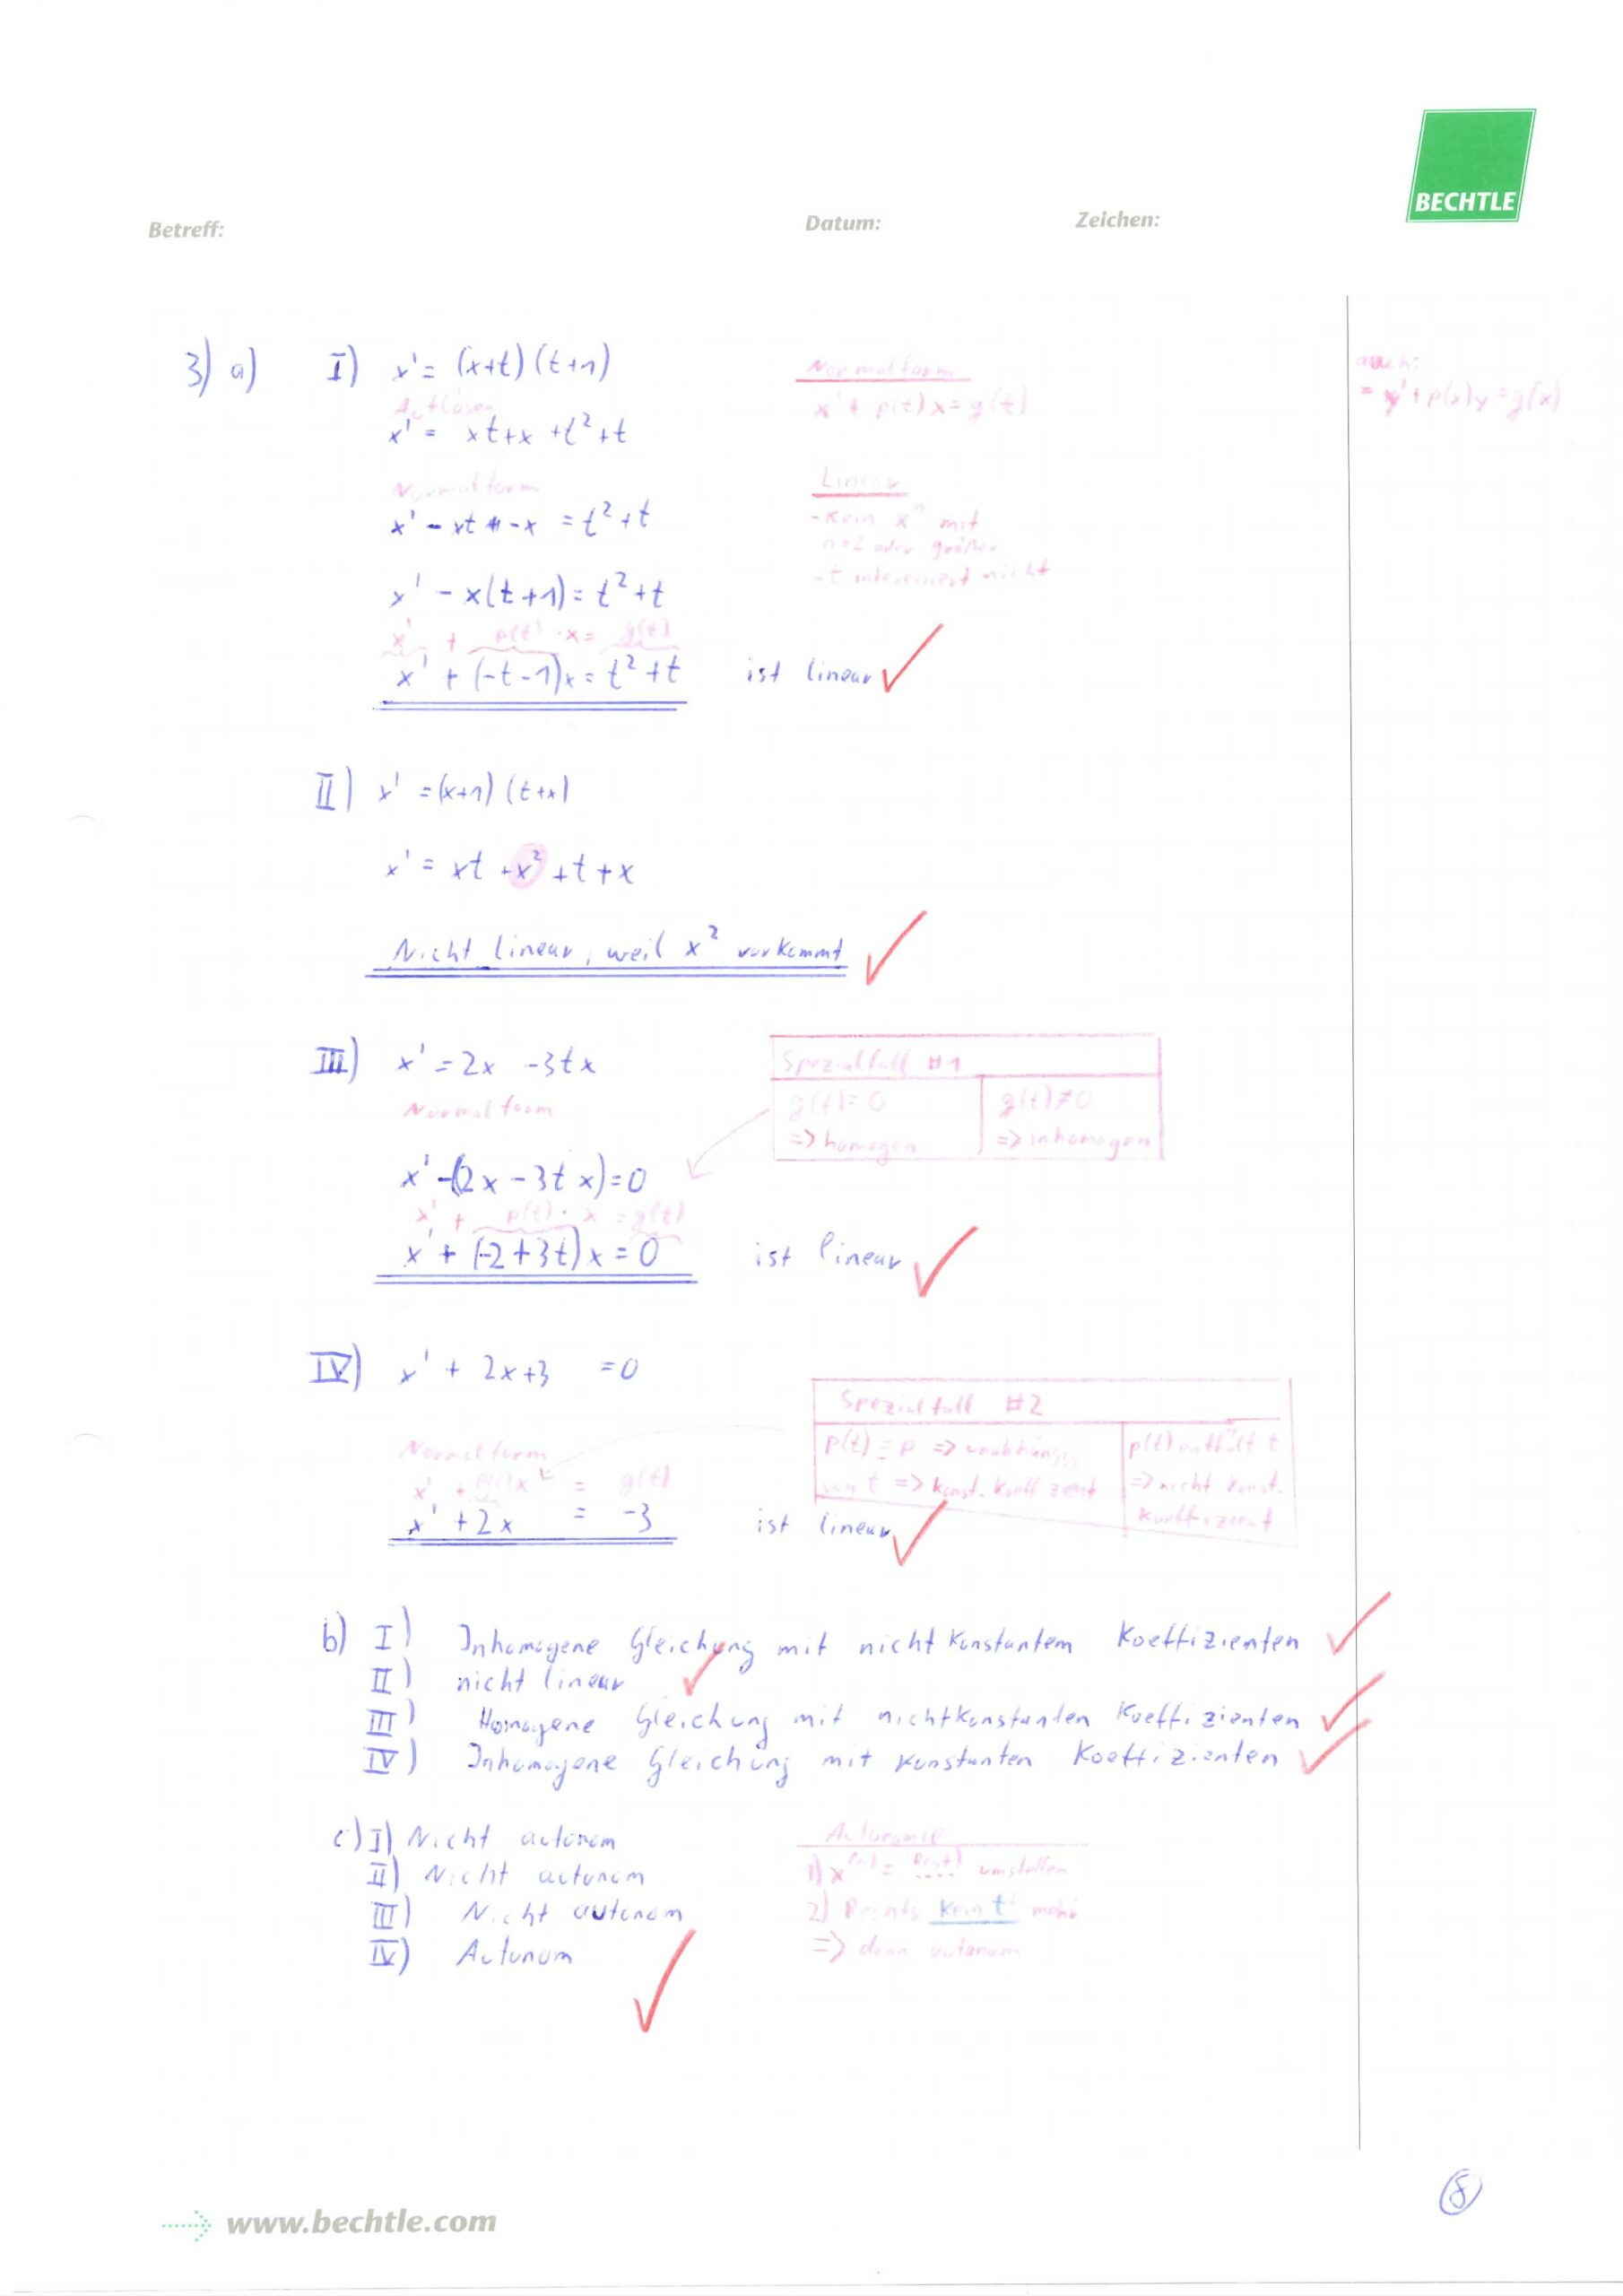 BECHTLE
Betreff: Datum: Zeichen:
3) a) I) x' = (x+t)(t+1)
Auflösen
x' = xt+x+t²+t
Normalform
x' - xt - x = t²+t
x' - x(t+1) = t²+t
x' + p(t) · x = g(t)
x' + (-t-1)x = t²+t ist linear ✓
Normalform
x' + p(t) x = g(t)
auch:
= y' + p(x)y = g(x)
Linear
- Kein xⁿ mit
n=2 oder größer
- t interessiert nicht
II) x' = (x+1)(t+x)
x' = xt + x² + t + x
Nicht linear, weil x² vorkommt ✓
III) x' = 2x - 3tx
Normalform
x' - (2x - 3tx) = 0
x' + p(t) · x = g(t)
x' + (-2+3t)x = 0 ist linear ✓
Spezialfall #1
g(t) = 0
=> homogen
g(t) ≠ 0
=> inhomogen
IV) x' + 2x+3 = 0
Normalform
x' + p(t)x = g(t)
x' + 2x = -3 ist linear ✓
Spezialfall #2
p(t) = p => unabhängig
von t => konst. Koeffizient
p(t) enthält t
=> nicht konst.
Koeffizient
b) I) Inhomogene Gleichung mit nicht konstantem Koeffizienten ✓
II) nicht linear ✓
III) Homogene Gleichung mit nichtkonstanten Koeffizienten ✓
IV) Inhomogene Gleichung mit konstanten Koeffizienten ✓
c) I) Nicht autonom
II) Nicht autonom
III) Nicht autonom
IV) Autonom
✓
Autonomie
1) x⁽ⁿ⁾ = (Rest) umstellen
2) Rechts kein t mehr
=> dann autonom
8
www.bechtle.com